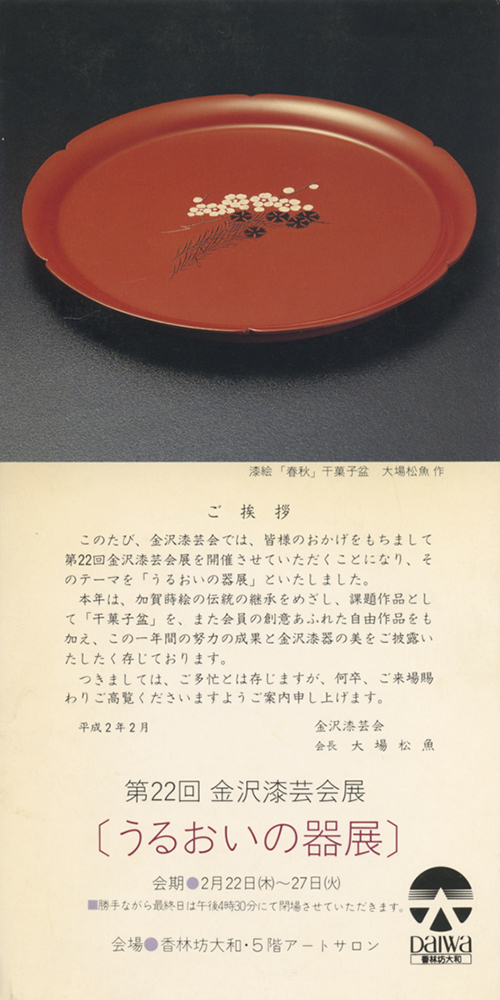 漆絵「春秋」干菓子盆　大場松魚 作
ご 挨 拶
このたび、金沢漆芸会では、皆様のおかげをもちまして
第22回金沢漆芸会展を開催させていただくことになり、そ
のテーマを「うるおいの器展」といたしました。
本年は、加賀蒔絵の伝統の継承をめざし、課題作品とし
て「干菓子盆」を、また会員の創意あふれた自由作品をも
加え、この一年間の努力の成果と金沢漆器の美をご披露い
たしたく存じております。
つきましては、ご多忙とは存じますが、何卒、ご来場賜
わりご高覧くださいますようご案内申し上げます。
平成2年2月
金沢漆芸会
会長　大 場 松 魚
第22回 金沢漆芸会展
〔うるおいの器展〕
会期●2月22日㈭〜27日㈫
■勝手ながら最終日は午後4時30分にて閉場させていただきます。
会場●香林坊大和・5階アートサロン
DAIWA
香林坊大和